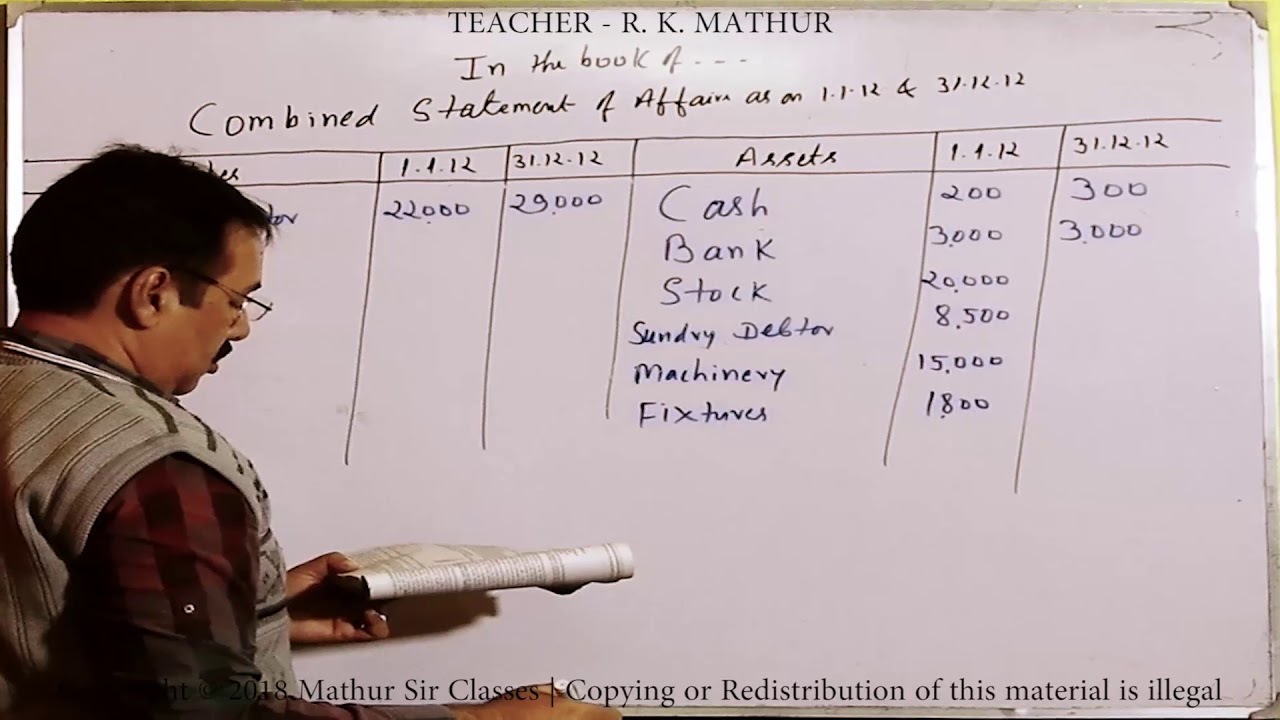 TEACHER - R. K. MATHUR
In the book of - - -
Combined Statement of Affairs as on 1.1.12 & 31.12.12
1.1.12 31.12.12 Assets 1.1.12 31.12.12
22,000 29,000 Cash 200 300
Bank 3,000 3,000
Stock 20,000
Sundry Debtor 8,500
Machinery 15,000
Fixtures 1,800
© 2018 Mathur Sir Classes | Copying or Redistribution of this material is illegal